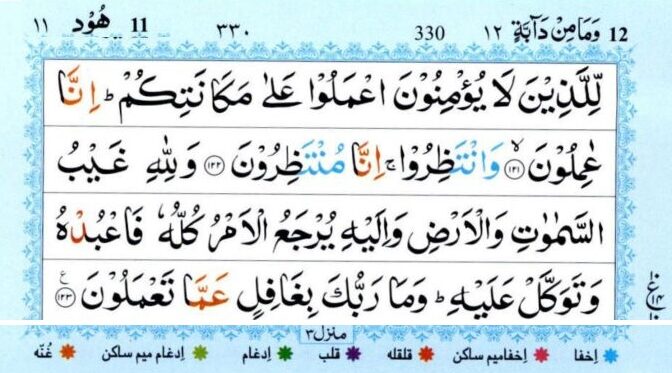 12 وَمَا مِنْ دَآبَّةٍ ١٢ 330 ٣٣٠ 11 هُوْد ١١
لِّلَّذِيْنَ لَا يُؤْمِنُوْنَ اعْمَلُوْا عَلٰى مَكَانَتِكُمْ ؕ اِنَّا
عٰمِلُوْنَ ۙ﴿۱۲۱﴾ وَانْتَظِرُوْا ۚ اِنَّا مُنْتَظِرُوْنَ ﴿۱۲۲﴾ وَلِلّٰهِ غَيْبُ
السَّمٰوٰتِ وَالْاَرْضِ وَاِلَيْهِ يُرْجَعُ الْاَمْرُ كُلُّهٗ فَاعْبُدْهُ
وَتَوَكَّلْ عَلَيْهِ ؕ وَمَا رَبُّكَ بِغَافِلٍ عَمَّا تَعْمَلُوْنَ ﴿۱۲۳﴾ ع
منزل ٣
اِخفا اِخفامیم ساکن قلقله قلب اِدغام اِدغام میم ساکن غُنّه